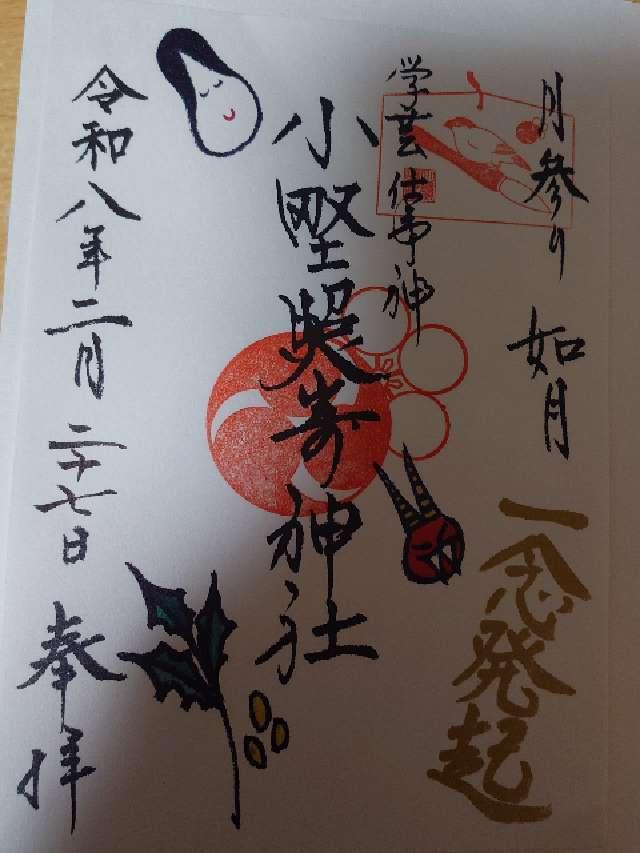 月参り 如月
一念発起
学芸仕事神
小野照崎神社
令和八年二月二十七日 奉拝